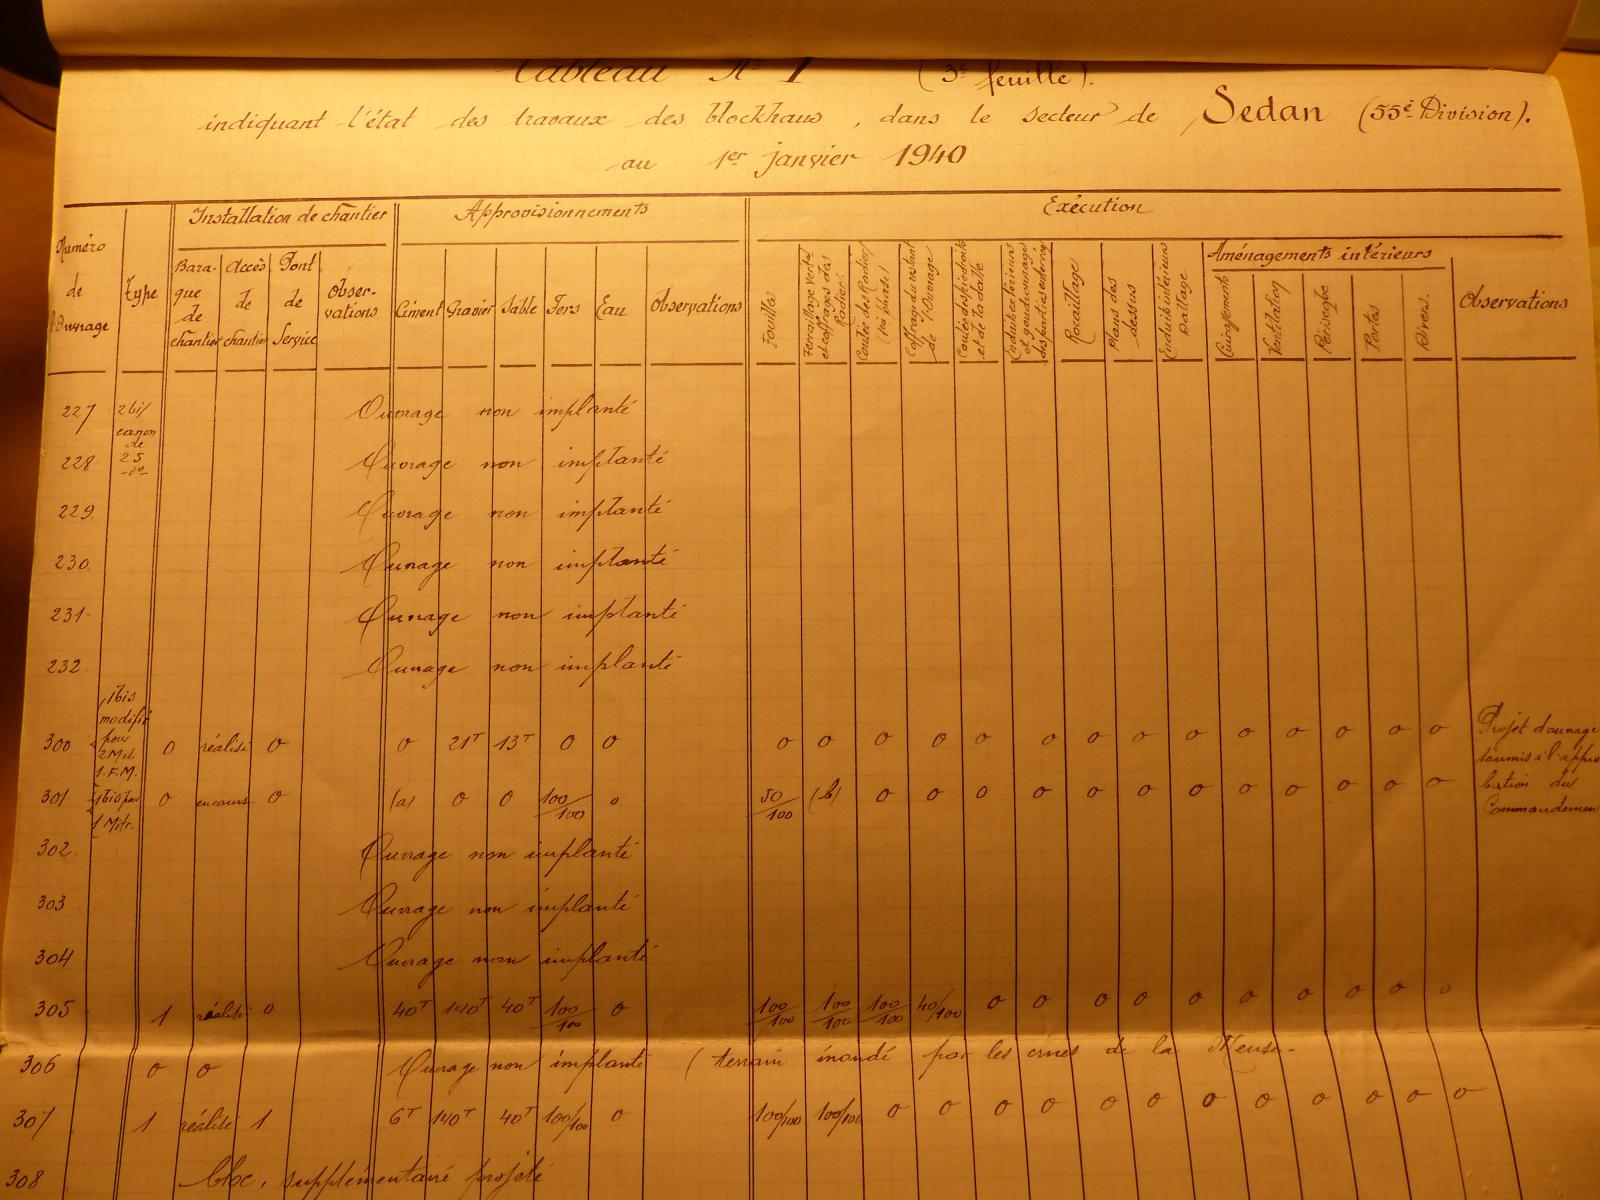 Tableau N° 1 (3e feuille).
indiquant l'état des travaux des blockhaus, dans le secteur de Sedan (55e Division).
au 1er janvier 1940
Numéro de l'Ouvrage
Type
Installation de chantier
Baraque de chantier
Accès de chantier
Pont de Service
Observations
Approvisionnements
Ciment Gravier Sable Fers Eau Observations
Exécution
Fouilles
Ferraillage vertal et coffrages des Radiers
Coulée des Radiers
Coffrage du restant de l'Ouvrage
Coulée des piedroits et de la dalle
Enduits extérieurs et goudronnage des parties enterrées
Rocaillage
Plans des dessus
Enduits intérieurs Dallage
Aménagements intérieurs
Cuirassement
Ventilation
Périscope
Portes
Divers.
Observations
227 2 bis canon de 25 Ouvrage non implanté
228 -do- Ouvrage non implanté
229 Ouvrage non implanté
230 Ouvrage non implanté
231 Ouvrage non implanté
232 Ouvrage non implanté
300 1 bis modifié pour 2 Mit 1. F.M. 0 réalisé 0 0 21T 13T 0 0 0 0 0 0 0 0 0 0 0 0 0 0 0 0
301 1 bis pour 1 Mitr. 0 en cours 0 (a) 0 0 100/100 0 50/100 (b) 0 0 0 0 0 0 0 0 0 0 0 0
Projet d'ouvrage
soumis à l'appro
bation du
Commandemen
302 Ouvrage non implanté
303 Ouvrage non implanté
304 Ouvrage non implanté
305 1 réalisé 0 40T 140T 40T 100/100 0 100/100 100/100 100/100 40/100 0 0 0 0 0 0 0 0 0 0
306 0 0 Ouvrage non implanté (terrain inondé par les crues de la Meuse-
307 1 réalisé 1 6T 140T 40T 100/100 0 100/100 100/100 0 0 0 0 0 0 0 0 0 0 0 0
308 bloc, supplémentaire projeté